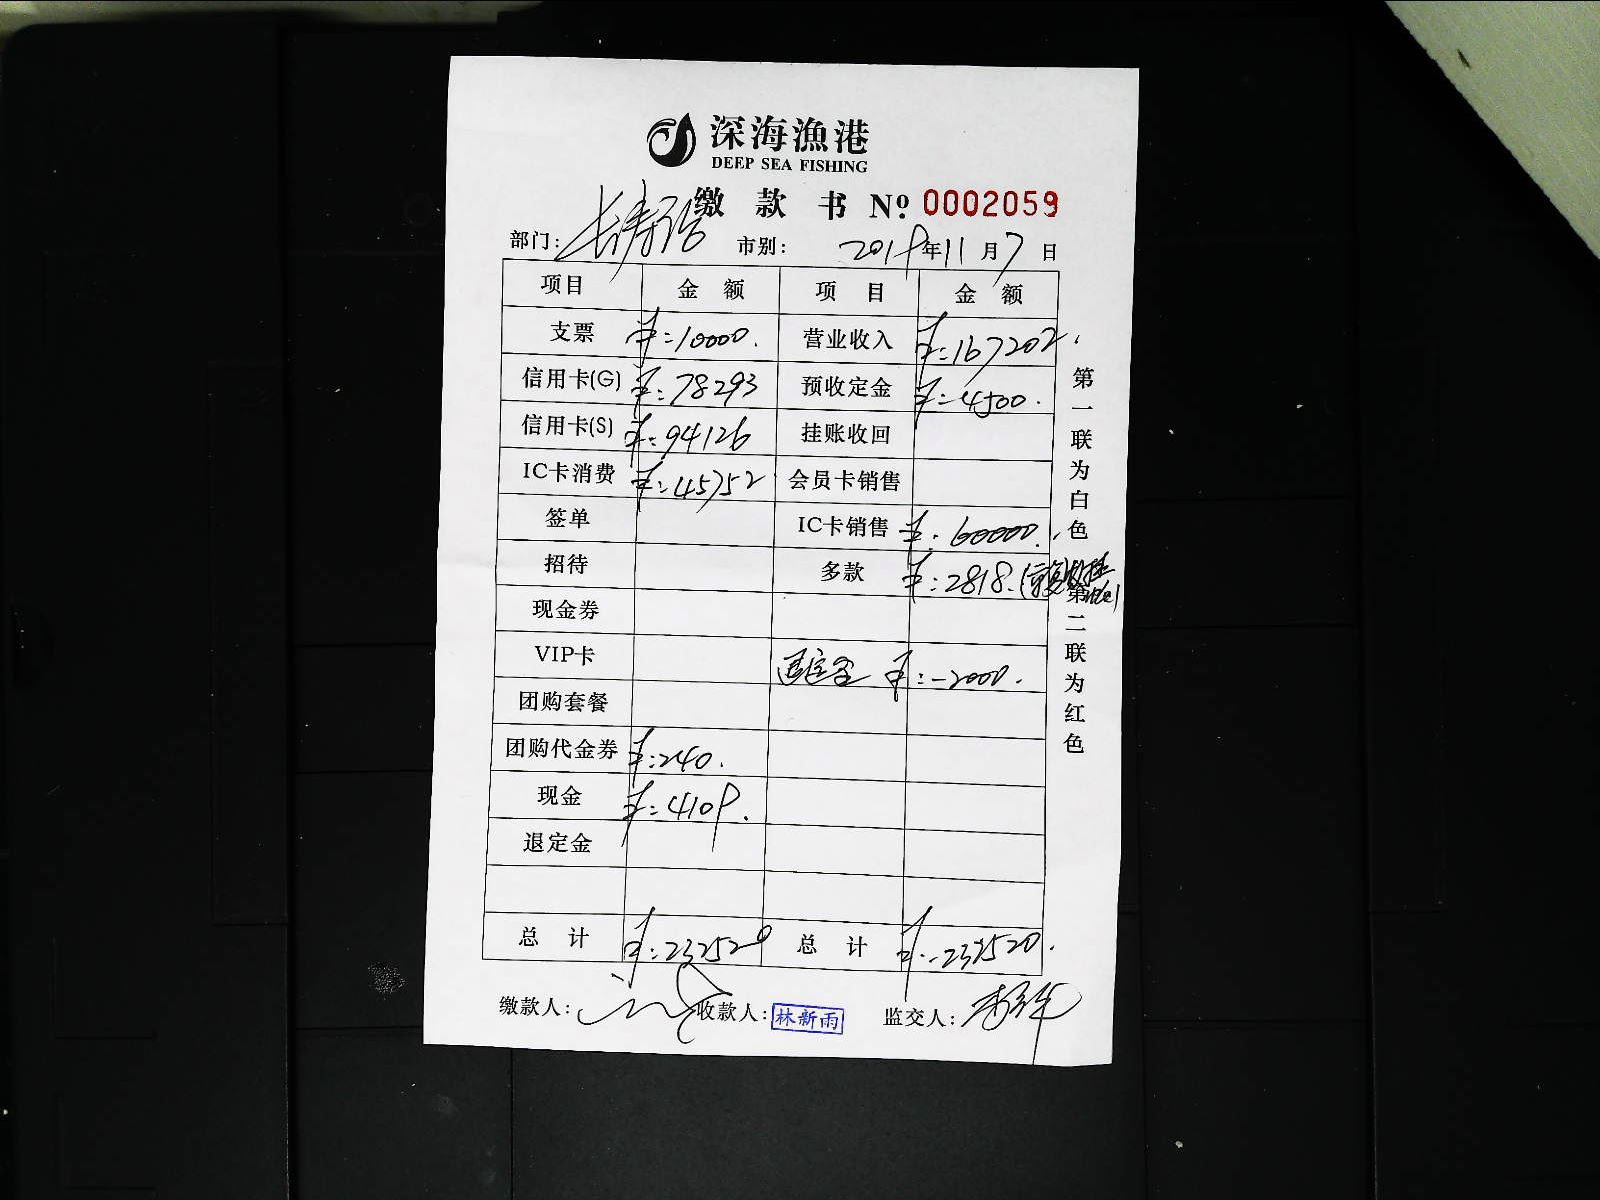 深海漁港
DEEP SEA FISHING
缴款书 № 0002059
部门: 长寿路 市别: 2019年11月7日
项目 金额 项目 金额
支票 ¥:10000. 营业收入 ¥:167202.
信用卡(G) ¥:78293 预收定金 ¥:4500.
信用卡(S) ¥:94126 挂账收回
IC卡消费 ¥:45752 会员卡销售
签单 IC卡销售 ¥:60000.
招待 多款 ¥:2818.
现金券
VIP卡 退定金 ¥:-2000.
团购套餐
团购代金券 ¥:240.
现金 ¥:4109.
退定金
总计 ¥:232520 总计 ¥:232520.
缴款人: 收款人: 林新雨 监交人:
第一联为白色
第二联为红色